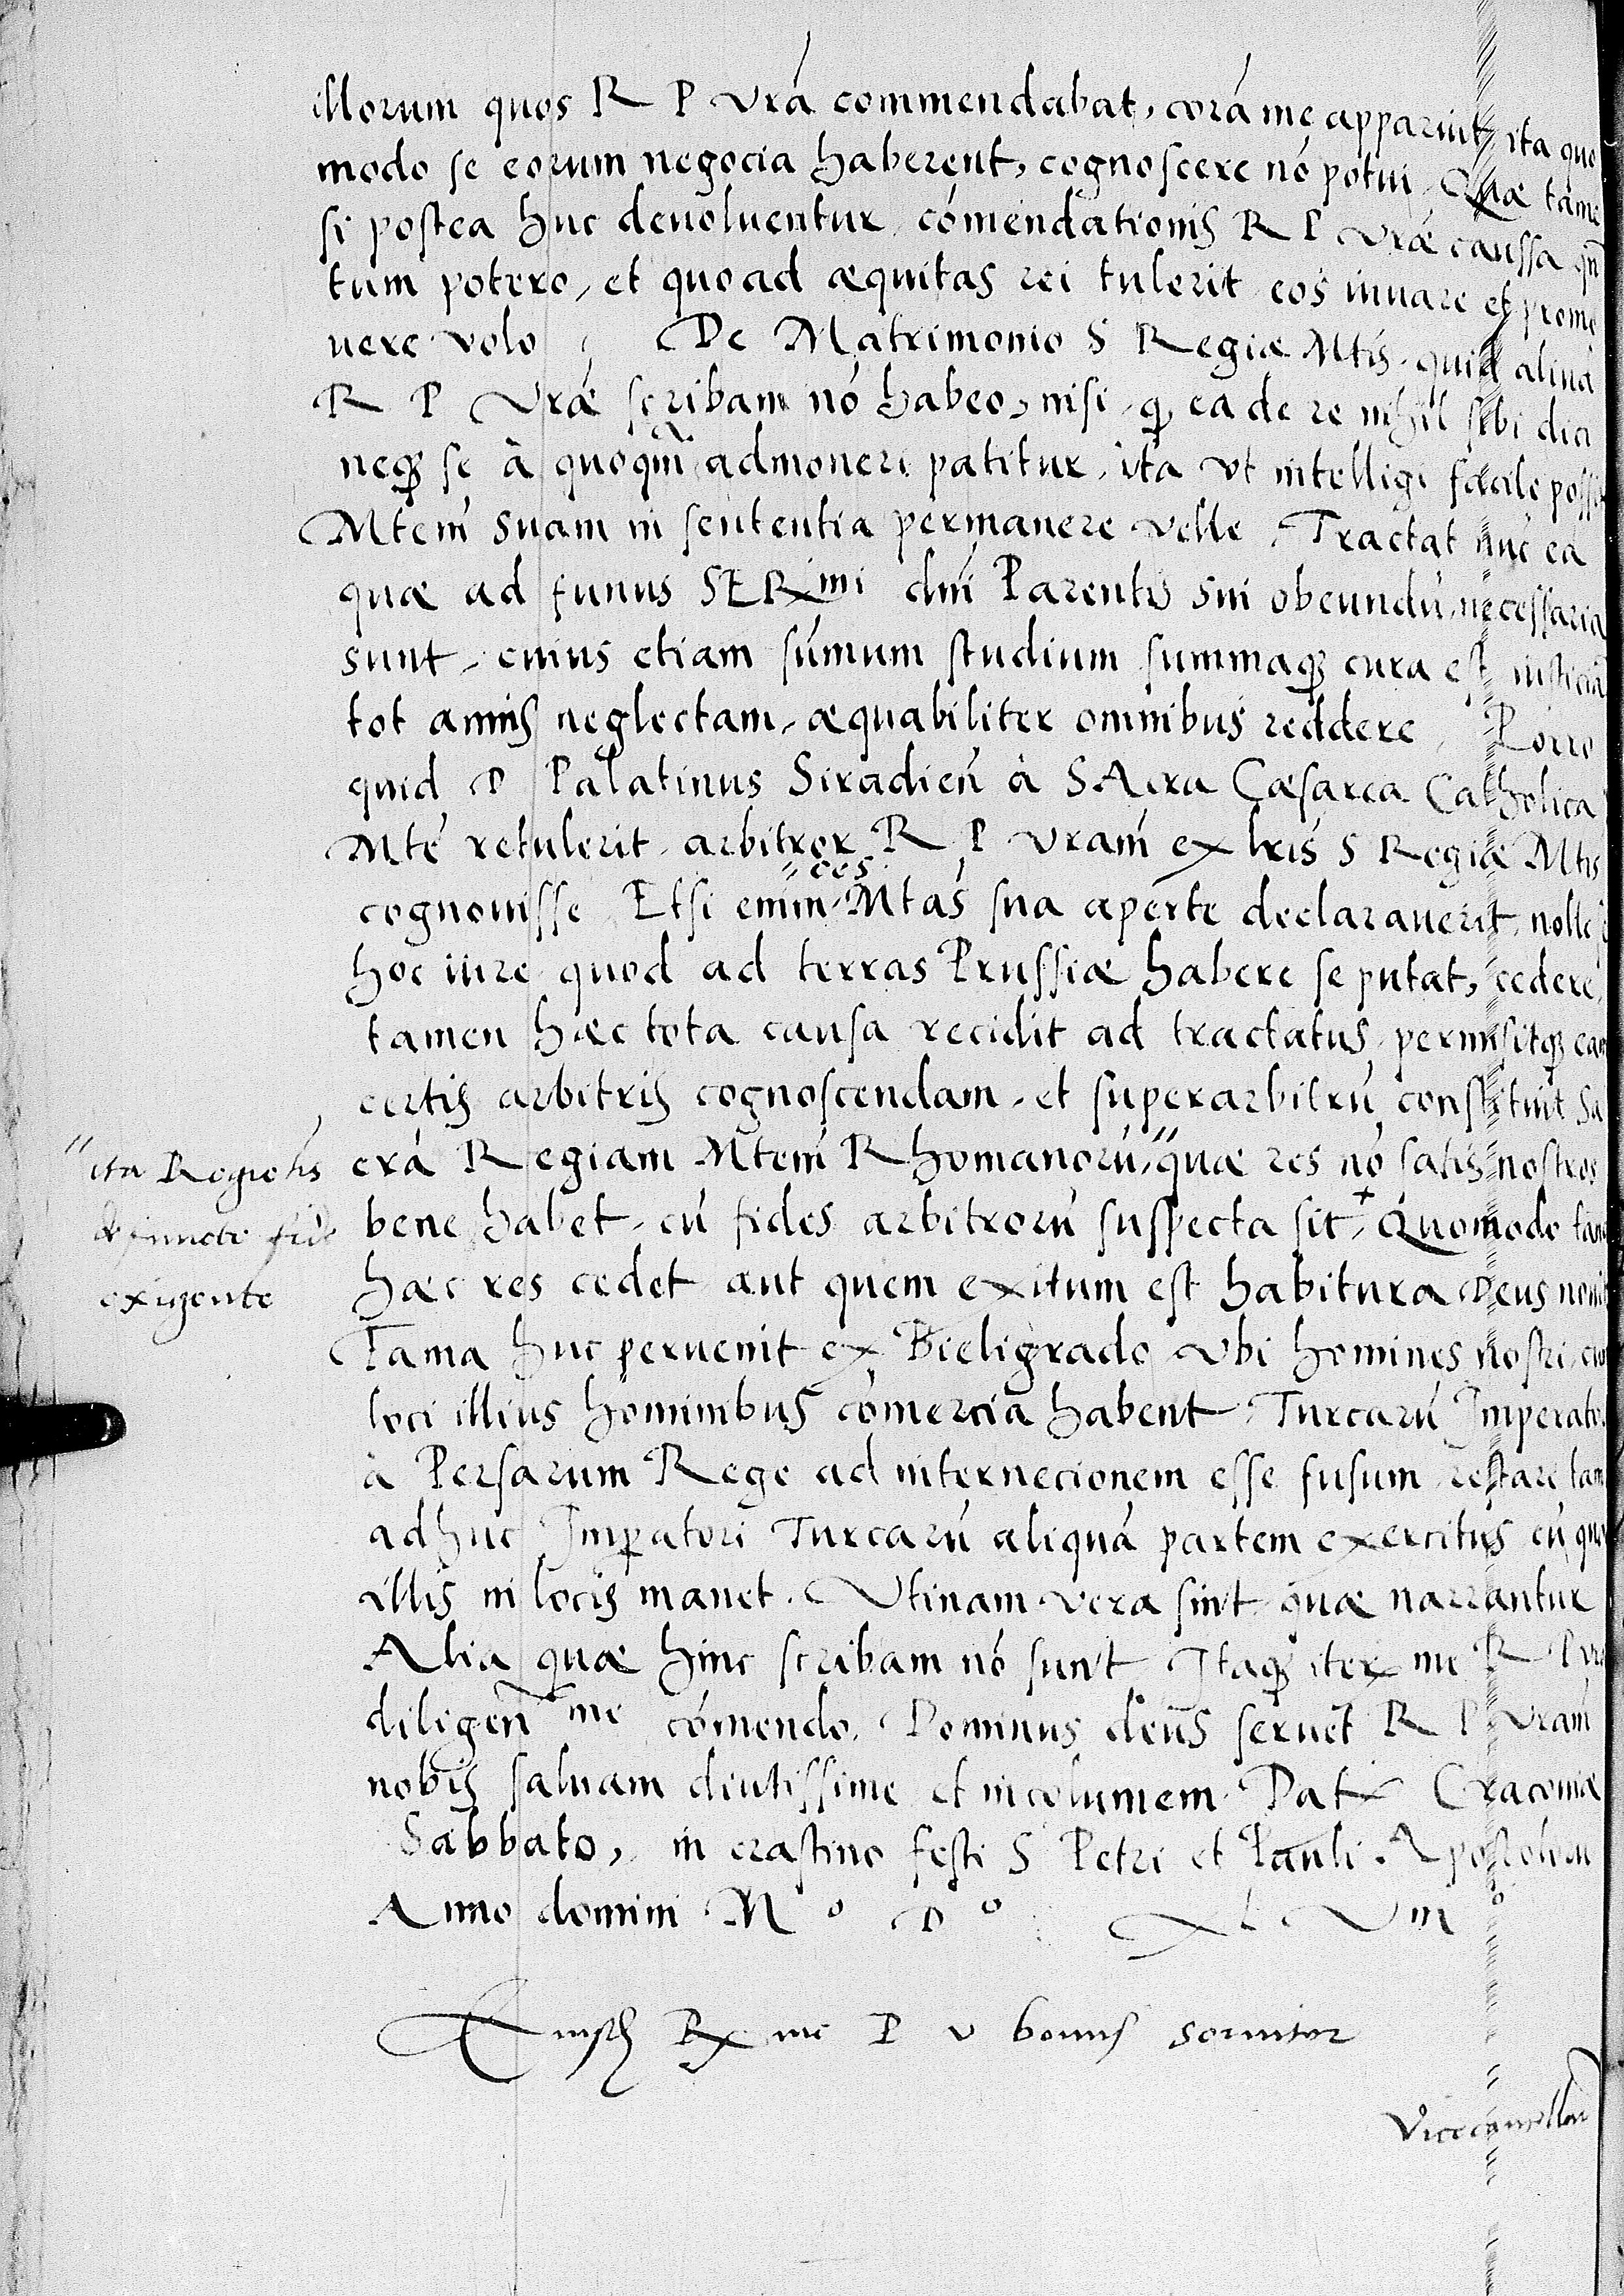 illorum quos R P vrã commendabat, corã me apparuit, ita quo
modo se eorum negocia haberent, cognoscere nõ potui. Quæ tame
si postea huc deuoluentur, cõmendationis R P vræ caussa qñ
tum potero, et quoad æquitas rei tulerit eos iuuare et promo
uere volo. De Matrimonio S Regiæ Mtis. quid aliud
R P Vræ scribam nõ habeo, nisi q ea de re nihil sibi dici
neq se à quoqm admoneri patitur, ita vt intelligi facile possit
Mtem suam in sententia permanere velle. Tractat nũc ea
quæ ad funus SERmi dni Parentis sui obeundũ necessaria
sunt, cuius etiam sũmum studium summaq cura est iusticiã
tot annis neglectam, æquabiliter omnibus reddere. Porro
quid D Palatinus Siradien à SAcra Cæsarea Catholica
Mte retulerit, arbitror R P vram ex lris S Regiæ Mtis
cognouisse. Etsi enim Mtas ces sua aperte declarauerit, nolle
hoc iure quod ad terras Prussiæ habere se putat, cedere,
tamen hæc tota causa recidit ad tractatus, permisitq eam
certis arbitris cognoscendam, et superarbitrũ constituit Sa
crã Regiam Mtem Rhomanorũ, quæ res nõ satis nostros
ita Regie tis
defuncti fide
exigente
bene habet, cũ fides arbitrorũ suspecta sit, Quomodo tam
hæc res cedet aut quem exitum est habitura Deus nouit
Fama huc peruenit ex Bieligrado vbi homines nostri cu
loci illius hominibus cõmercia habent, Turcarũ Imperato
à Persarum Rege ad internecionem esse fusum, restare tam
adhuc Imperatori Turcarũ aliquã partem exercitus cũ qua
illis in locis manet. Vtinam vera sint quæ narrantur
Alia quæ hinc scribam nõ sunt Itaq iter me R P vræ
diligen me cõmendo. Dominus deus seruet R P vram
nobis saluam diutissime et incolumem. Dat Cracouiæ
Sabbato, in crastino festi S Petri et Pauli. Apostolorum
Anno domini M o D o XL VIII o
Eiusd Rx me P v bonus seruitor
Vicecancellari